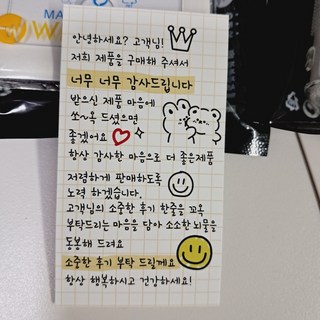 MA
W
안녕하세요? 고객님!
저희 제품을 구매해 주셔서
너무 너무 감사드립니다
받으신 제품 마음에
쏘~옥 드셨으면
좋겠어요
항상 감사한 마음으로 더 좋은제품
저렴하게 판매하도록
노력 하겠습니다.
고객님의 소중한 후기 한줄을 꼬옥
부탁드리는 마음을 담아 소소한 뇌물을
동봉해 드려요
소중한 후기 부탁 드릴께요
항상 행복하시고 건강하세요!